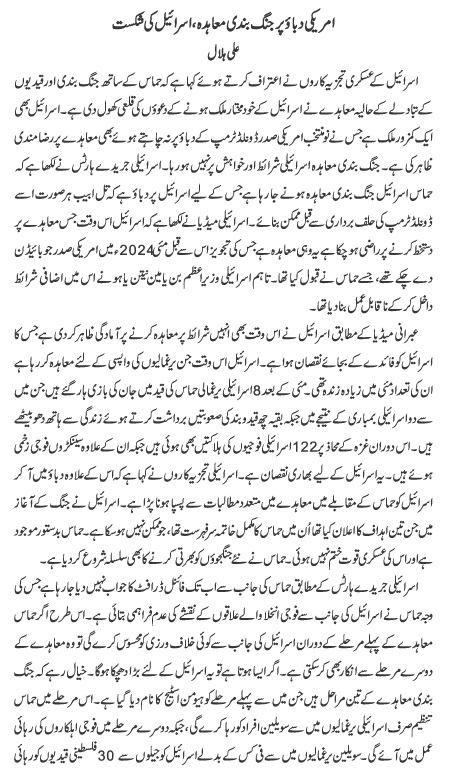 امریکی دباؤ پر جنگ بندی معاہدہ، اسرائیل کی شکست
علی ہلال
اسرائیل کے عسکری تجزیہ کاروں نے اعتراف کرتے ہوئے کہا ہے کہ حماس کے ساتھ جنگ بندی اور قیدیوں
کے تبادلے کے حالیہ معاہدے نے اسرائیل کے خود مختار ملک ہونے کے دعوؤں کی قلعی کھول دی ہے۔ اسرائیل بھی
ایک کمزور ملک ہے جس نے نو منتخب امریکی صدر ڈونلڈ ٹرمپ کے دباؤ پر نہ چاہتے ہوئے بھی معاہدے پر رضامندی
ظاہر کی ہے۔ جنگ بندی معاہدہ اسرائیلی شرائط اور خواہش پر نہیں ہو رہا۔ اسرائیلی جریدے ہارٹس نے لکھا ہے کہ
حماس اسرائیل جنگ بندی معاہدہ ہونے جا رہا ہے جس کے لیے اسرائیل پر دباؤ ہے کہ تل ابیب ہر صورت اسے
ڈونلڈ ٹرمپ کی حلف برداری سے قبل ممکن بنائے۔ اسرائیلی میڈیا نے لکھا ہے کہ اسرائیل اس وقت جس معاہدے پر
دستخط کرنے پر راضی ہو چکا ہے یہ وہی معاہدہ ہے جس کی تجویز اس سے قبل مئی 2024ء میں امریکی صدر جو بائیڈن
دے چکے تھے، جسے حماس نے قبول کیا تھا۔ تاہم اسرائیلی وزیر اعظم بن یامین نیتن یاہو نے اس میں اضافی شرائط
داخل کر کے ناقابل عمل بنا دیا تھا۔
عبرانی میڈیا کے مطابق اسرائیل نے اس وقت بھی انہیں شرائط پر معاہدہ کرنے پر آمادگی ظاہر کر دی ہے جس کا
اسرائیل کو فائدے کے بجائے نقصان ہوا ہے۔ اسرائیل اس وقت جن یرغمالیوں کی واپسی کے لئے معاہدہ کر رہا ہے
ان کی تعداد مئی میں زیادہ زندہ تھی۔ مئی کے بعد 8 اسرائیلی یرغمالی حماس کی قید میں جان کی بازی ہار گئے ہیں جن میں
سے دو اسرائیلی بمباری کے نتیجے میں جبکہ بقیہ چھ قید و بند کی صعوبتیں برداشت کرتے ہوئے زندگی سے ہاتھ دھو بیٹھے
ہیں۔ اس دوران غزہ کے محاذ پر 122 اسرائیلی فوجیوں کی ہلاکتیں بھی ہوئی ہیں جبکہ ان کے علاوہ سینکڑوں فوجی زخمی
ہوئے ہیں۔ یہ اسرائیل کے لیے بھاری نقصان ہے۔ اسرائیلی تجزیہ کاروں نے کہا ہے کہ اس کے علاوہ دباؤ میں آ کر
اسرائیل کو حماس کے مقابلے میں معاہدے میں متعدد مطالبات سے پسپا ہونا پڑا ہے۔ اسرائیل نے جنگ کے آغاز
میں جن تین اہداف کا اعلان کیا تھا اُن میں حماس کا مکمل خاتمہ سرفہرست تھا، جو ممکن نہیں ہو سکا ہے۔ حماس بدستور موجود
ہے اور اس کی عسکری قوت ختم نہیں ہوئی۔ حماس نے نئے جنگجوؤں کو بھرتی کرنے کا بھی سلسلہ شروع کر دیا ہے۔
اسرائیلی جریدے ہارٹس کے مطابق حماس کی جانب سے اب تک فائنل ڈرافٹ کا جواب نہیں دیا جا رہا ہے جس کی
وجہ حماس نے اسرائیل کی جانب سے فوجی انخلا والے علاقوں کے نقشے کی عدم فراہمی بتائی ہے۔ اس طرح اگر حماس
معاہدے کے پہلے مرحلے کے دوران اسرائیل کی جانب سے کوئی خلاف ورزی محسوس کرے گی تو وہ معاہدے کے
دوسرے مرحلے سے انکار بھی کر سکتی ہے۔ اگر ایسا ہوتا ہے تو یہ اسرائیل کے لئے بڑا دھچکا ہوگا۔ خیال رہے کہ جنگ
بندی معاہدے کے تین مراحل ہیں جن میں سے پہلے مرحلے کو ہیومن اسٹیج کا نام دیا گیا ہے۔ اس مرحلے میں حماس
تنظیم صرف اسرائیلی یرغمالیوں میں سے سویلین افراد کو رہا کرے گی، جبکہ دوسرے مرحلے میں فوجی اہلکاروں کی رہائی
عمل میں آئے گی۔ سویلین یرغمالیوں میں سے فی کس کے بدلے اسرائیل کو جیلوں سے 30 فلسطینی قیدیوں کو رہائی